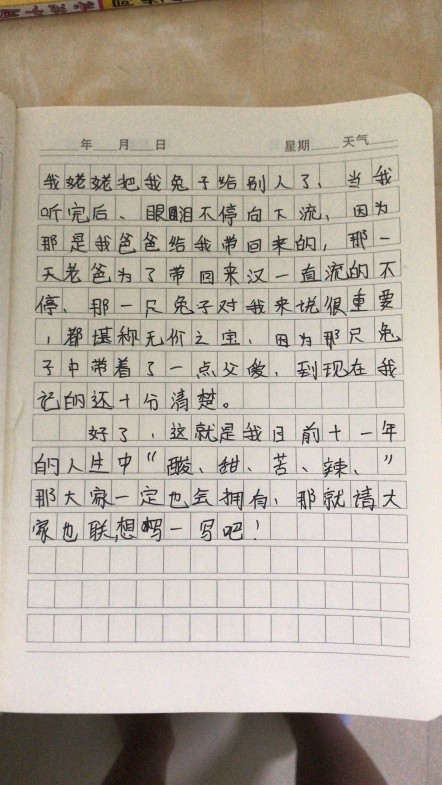 年 月 日 星期 天气
我姥姥把我兔子给别人了、当我
听完后、眼泪不停向下流,因为
那是我爸爸给我带回来的,那一
天老爸为了带回来汉一直流的不
停、那一只兔子对我来说很重要
,都堪称无价之宝、因为那只兔
子中带着了一点父爱,到现在我
记的还十分清楚。
好了,这就是我目前十一年
的人生中“酸、甜、苦、辣、”
那大家一定也会拥有,那就请大
家也联想写一写吧!